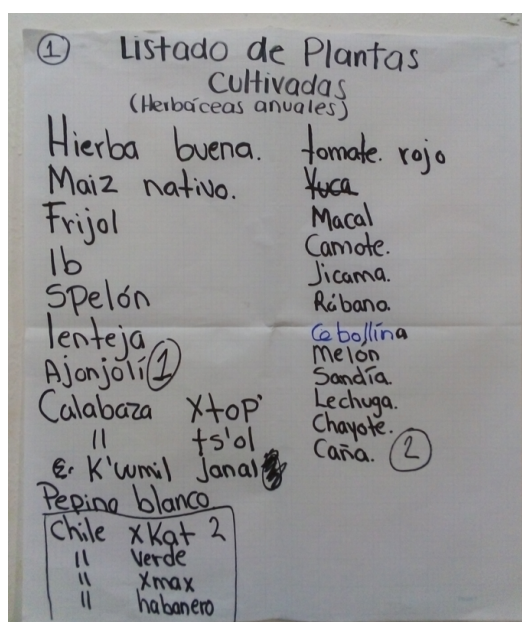 1 Listado de Plantas
Cultivadas
(Herbáceas anuales)
Hierba buena.
Maiz nativo.
Frijol
Ib
Spelón
lenteja
Ajonjolí 1
Calabaza Xtop'
" ts'ol
K'umil Janal
Pepino blanco
Chile xKat 2
" verde
" xmax
" habanero
tomate. rojo
Yuca
Macal
Camote.
Jicama.
Rábano.
Cebollina
Melón
Sandía.
Lechuga.
Chayote.
Caña. 2